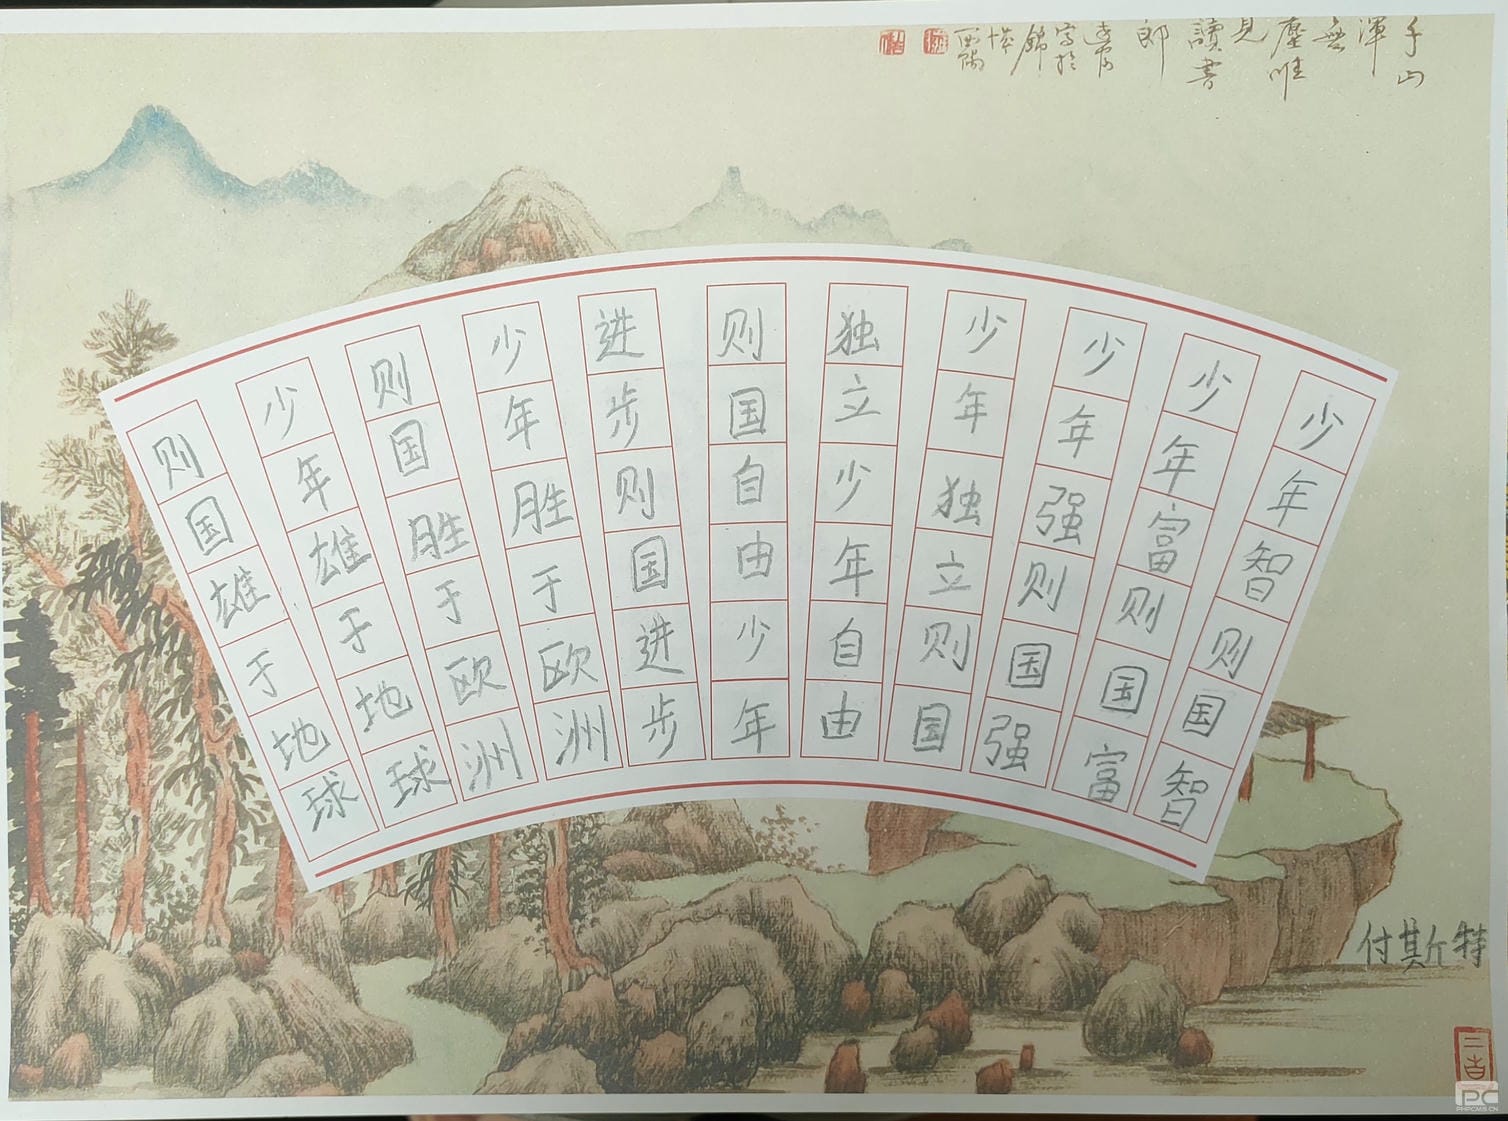 山
渾
無
塵唯
見
讀書
郎
寫於
錦
城
西隅
少年智则国智
少年富则国富
少年强则国强
少年独立则国
独立少年自由
则国自由少年
进步则国进步
少年胜于欧洲
则国胜于欧洲
少年雄于地球
则国雄于地球
付斯特
PC
PHPCMS.CN